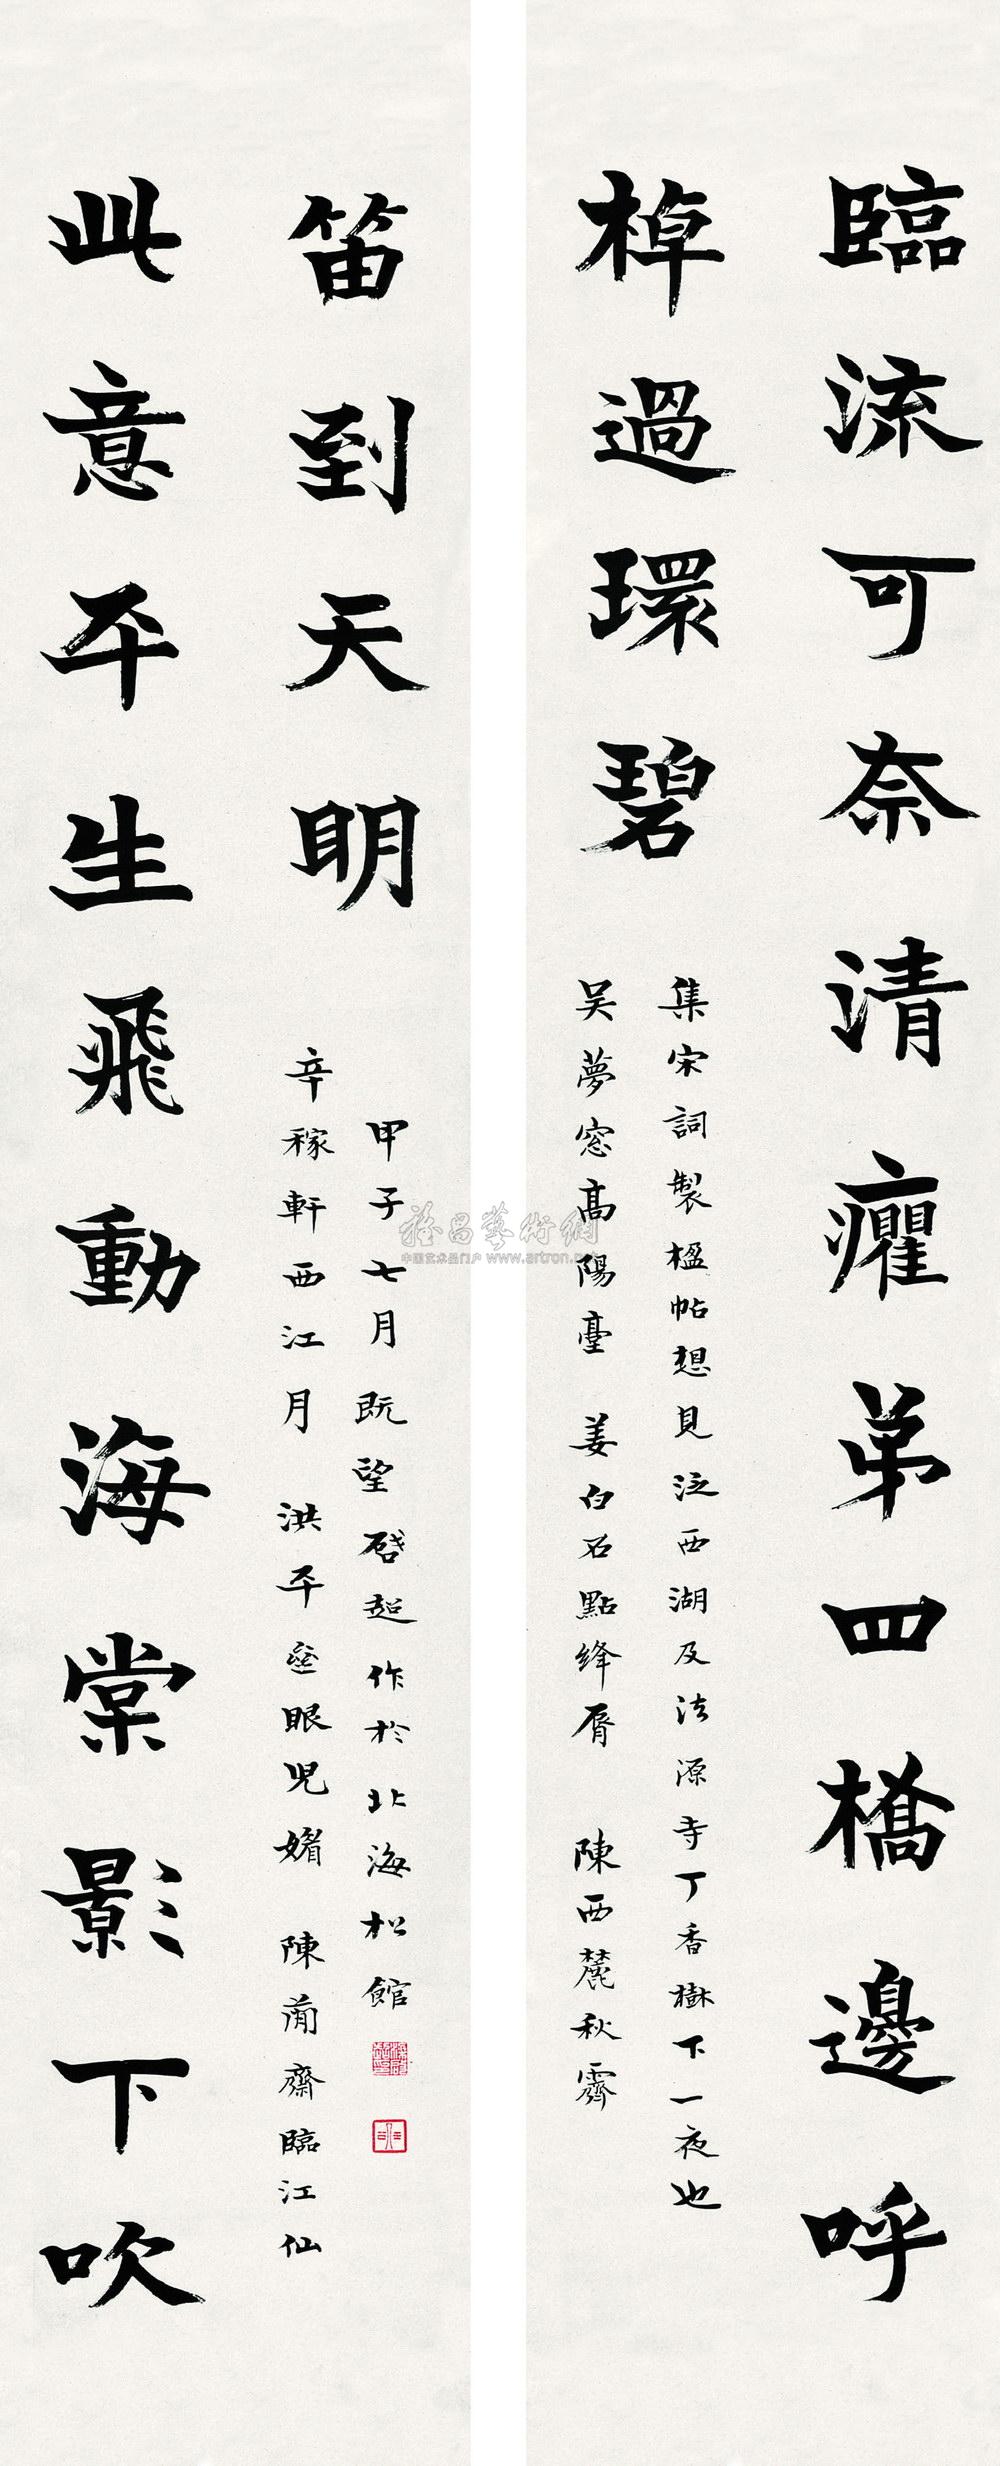 臨流可奈清癯弟四橋邊呼
棹過環碧
集宋詞製楹帖想見泛西湖及法源寺丁香樹下一夜也
吴夢窓高陽臺 姜白石點絳脣 陳西麓秋霽
此意平生飛動海棠影下吹
笛到天明
甲子七月既望啓超作於北海松館
辛稼軒西江月 洪平 眼兒媚 陳簡齋臨江仙
雅昌藝術網
中国艺术品门户 www.artron.net